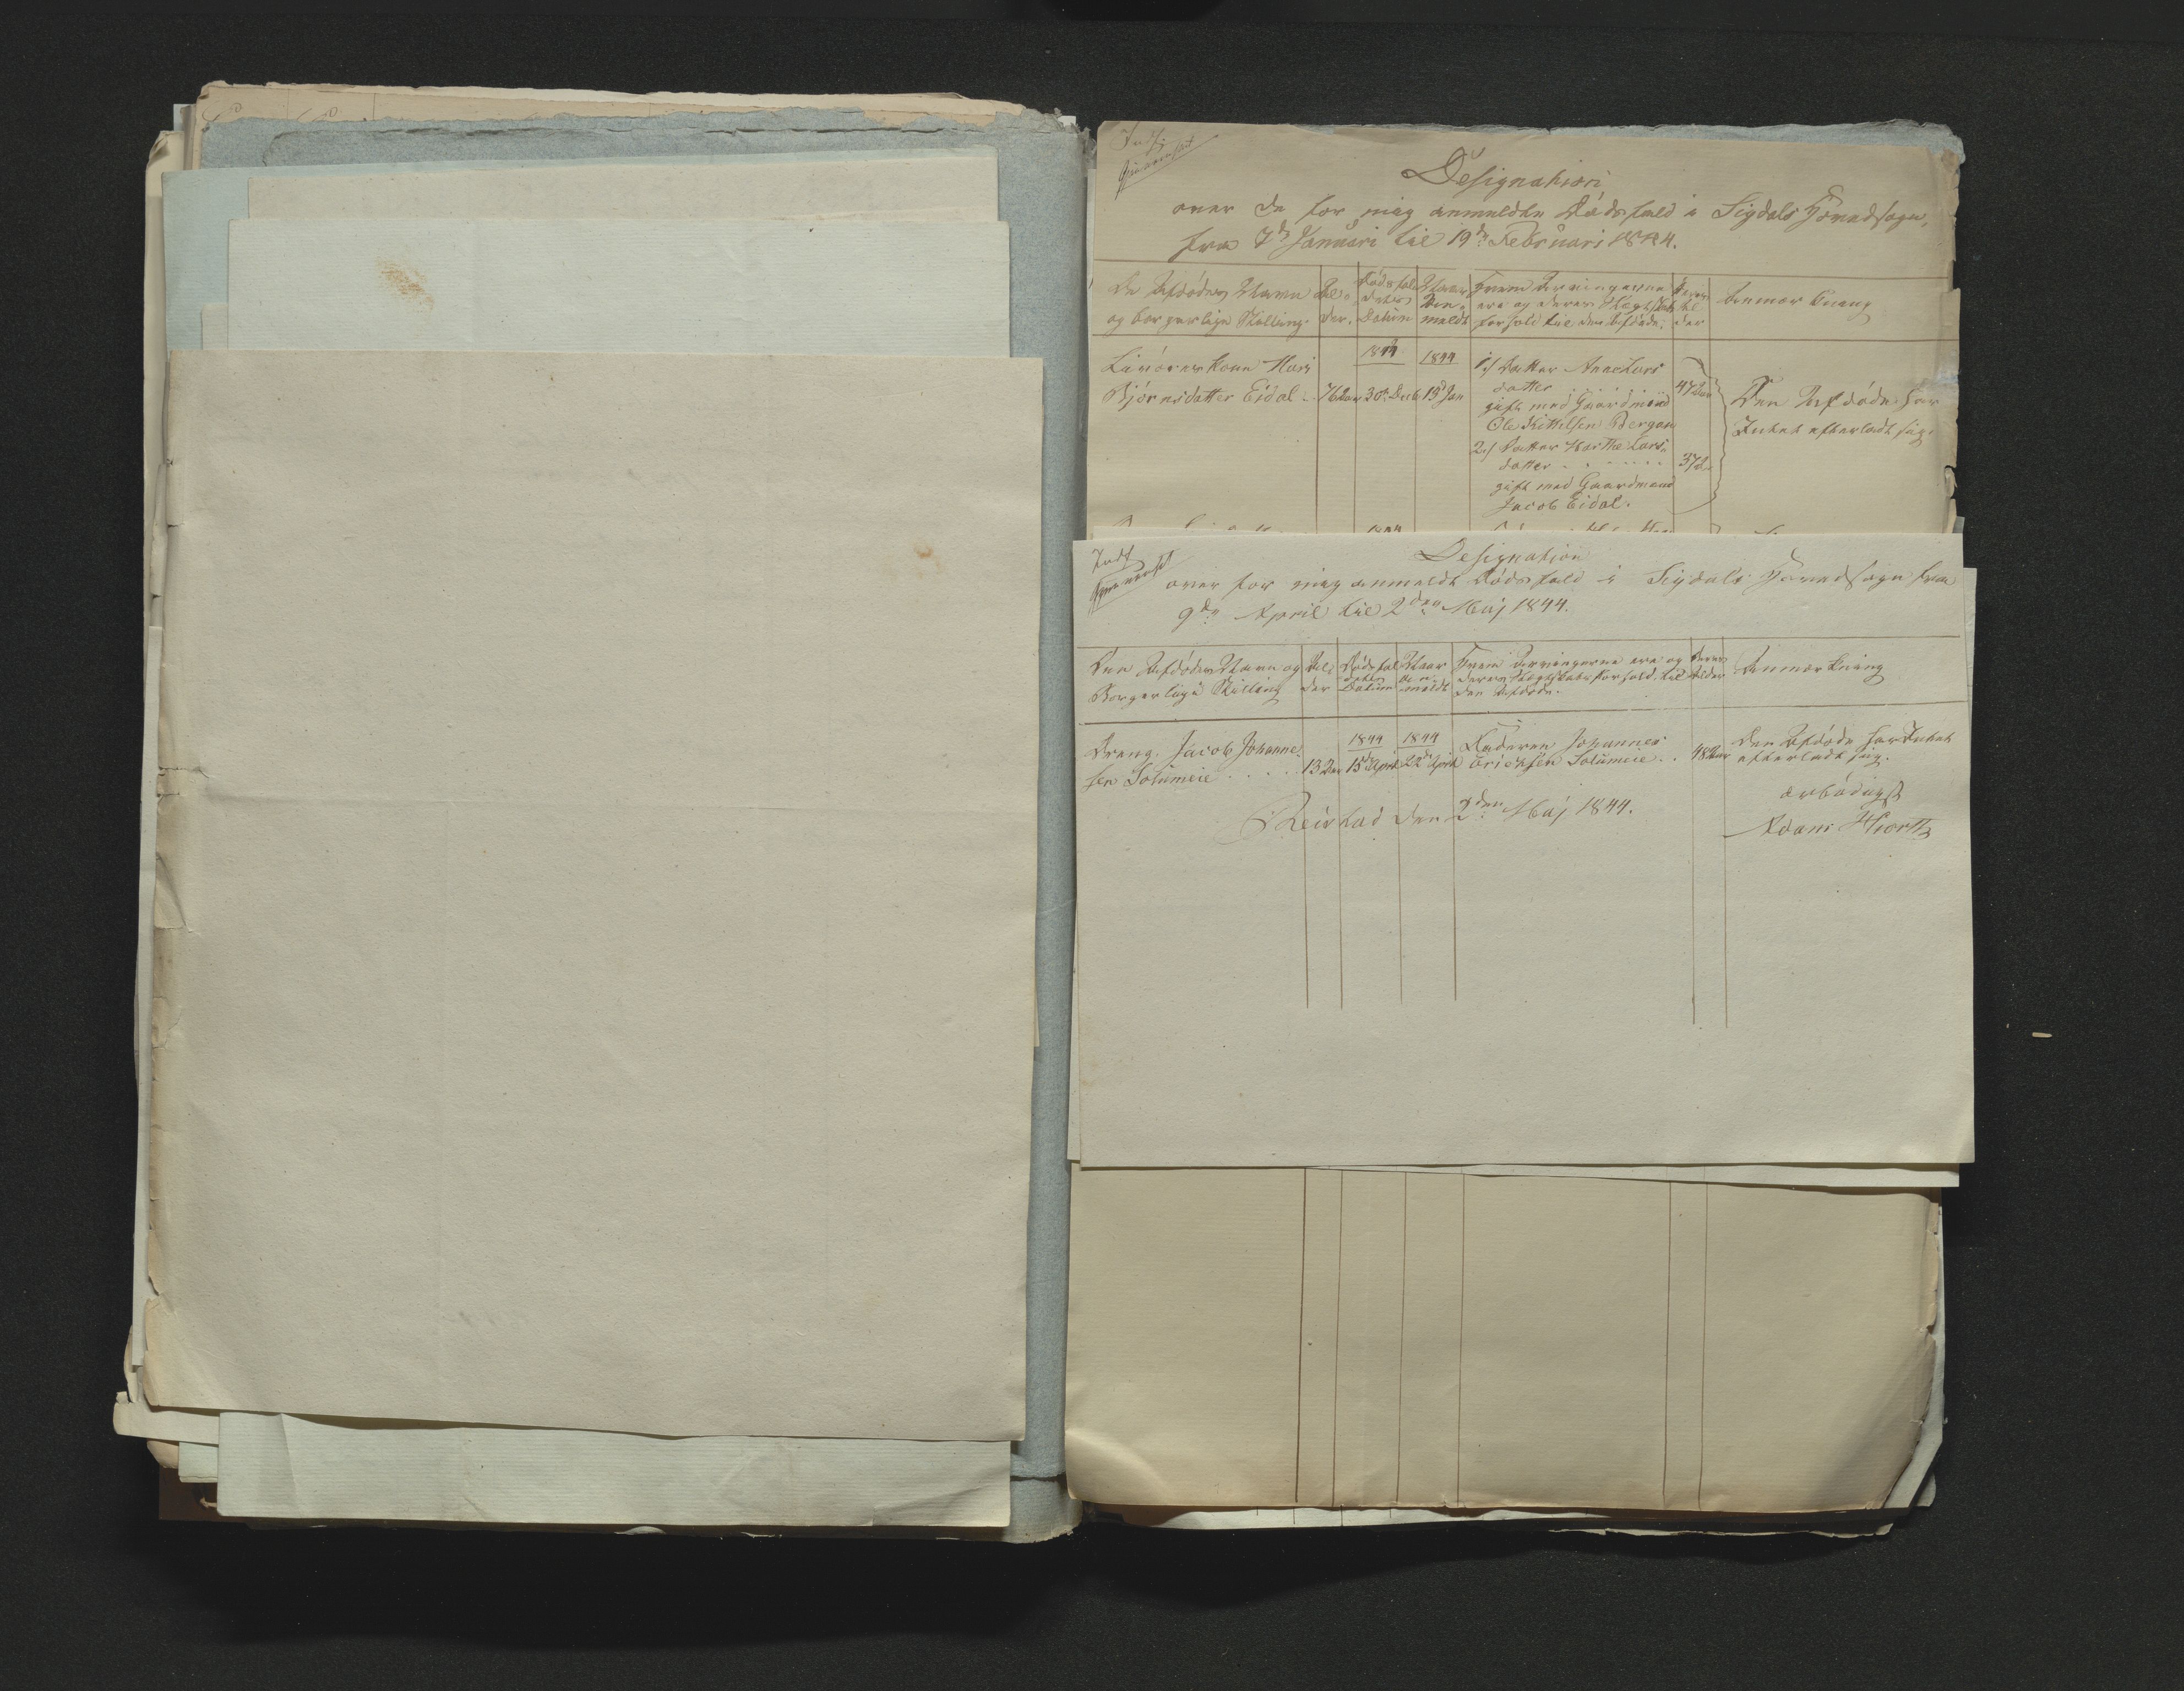 Indf
Designation
over de for mig anmeldte Dødsfald i Sigdals Hovedsogn,
fra 7de Januari til 19de Februari 1844.
De Afdødes Navn
og borgerlige Stilling.
Al-
der.
Dødsfal
dets
Datum
Naar
An-
meldt
Hvem Arvingerne
ere og deres Slægtskabs
forhold til den Afdøde.
Deres
Al
der
Anmærkning
Livøreskone Mari
Bjørnsdatter Eidal
76 Aar
30te Decb
1844
13de Jan
1/ Datter Anne Lars
datter
gift med Gaardmand
Ole Kittelsen Bergan
47 Aar
2/ Datter Marthe Lars-
datter
37 Aar
gift med Gaardmand
Jacob Eidal.
Den Afdøde har
Intet efterladt sig.
1844
Indf
Designation
over for mig anmeldt Dødsfald i Sigdals Hovedsogn fra
9de April til 2den Maj 1844.
Den Afdødes Navn og
Borgerlige Stilling
Al-
der
Dødsfal
dets
Datum
Naar
an-
meldt
Hvem Arvingerne ere og
deres Slægtskabs forhold til
den Afdøde.
Deres
Alder
Anmærkning
Dreng Jacob Johanne
sen Solumeie
13 Aar
1844
15de April
1844
22de April
Faderen Johannes
Erichsen Solumeie
48 Aar
Den Afdøde har Intet
efterladt sig.
Reistad den 2den Maj 1844.
ærbødigst
Adam Hiorth